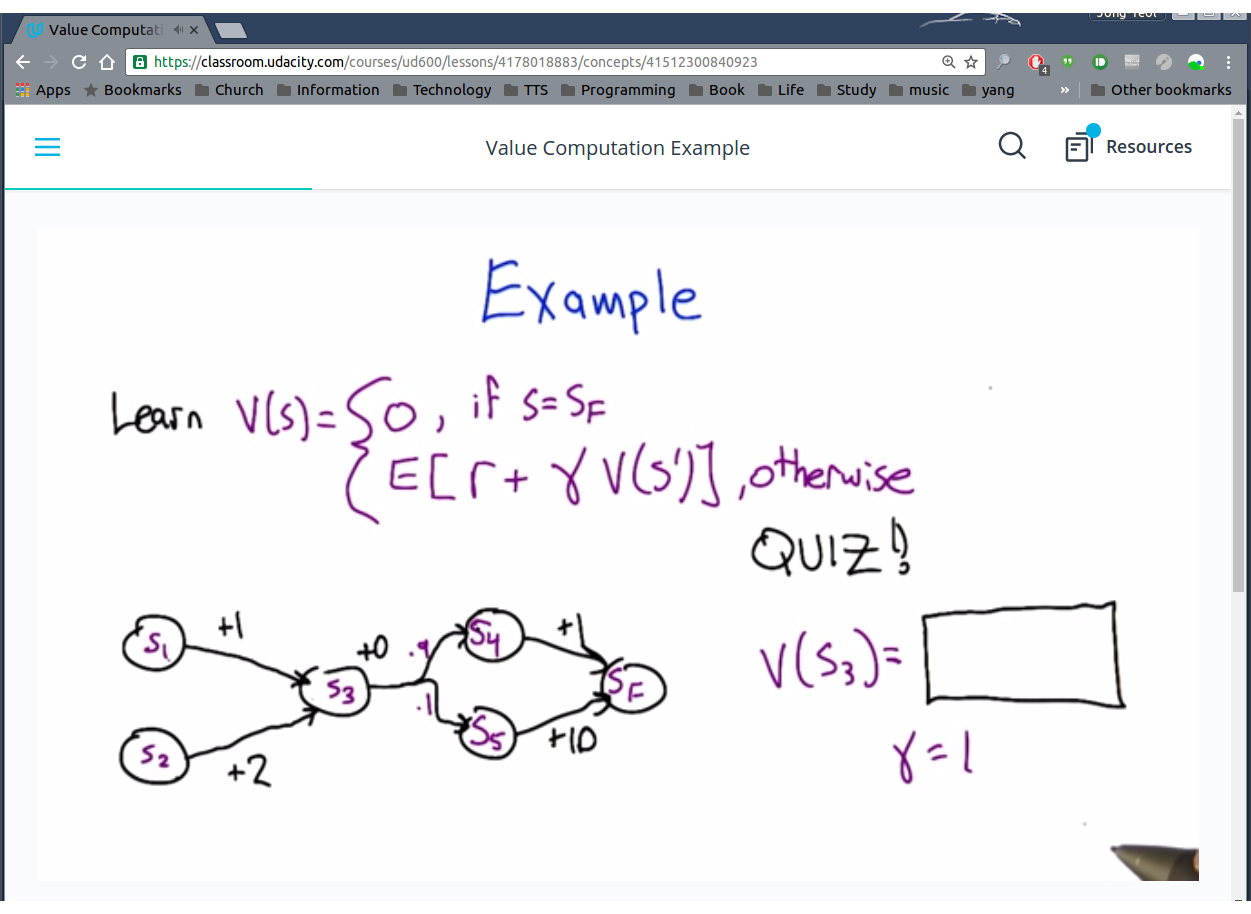 Value Computati
Jong Yeol
https://classroom.udacity.com/courses/ud600/lessons/4178018883/concepts/41512300840923
4
Apps Bookmarks Church Information Technology TTS Programming Book Life Study music yang » Other bookmarks
Value Computation Example
Resources
Example
Learn V(s)= { 0, if s=SF
E[r + γ V(s')], otherwise
QUIZ!
S1 +1
+0 .9 S4 +1
V(S3)=
S3 SF
.1 S5 +10
S2 +2
γ = 1